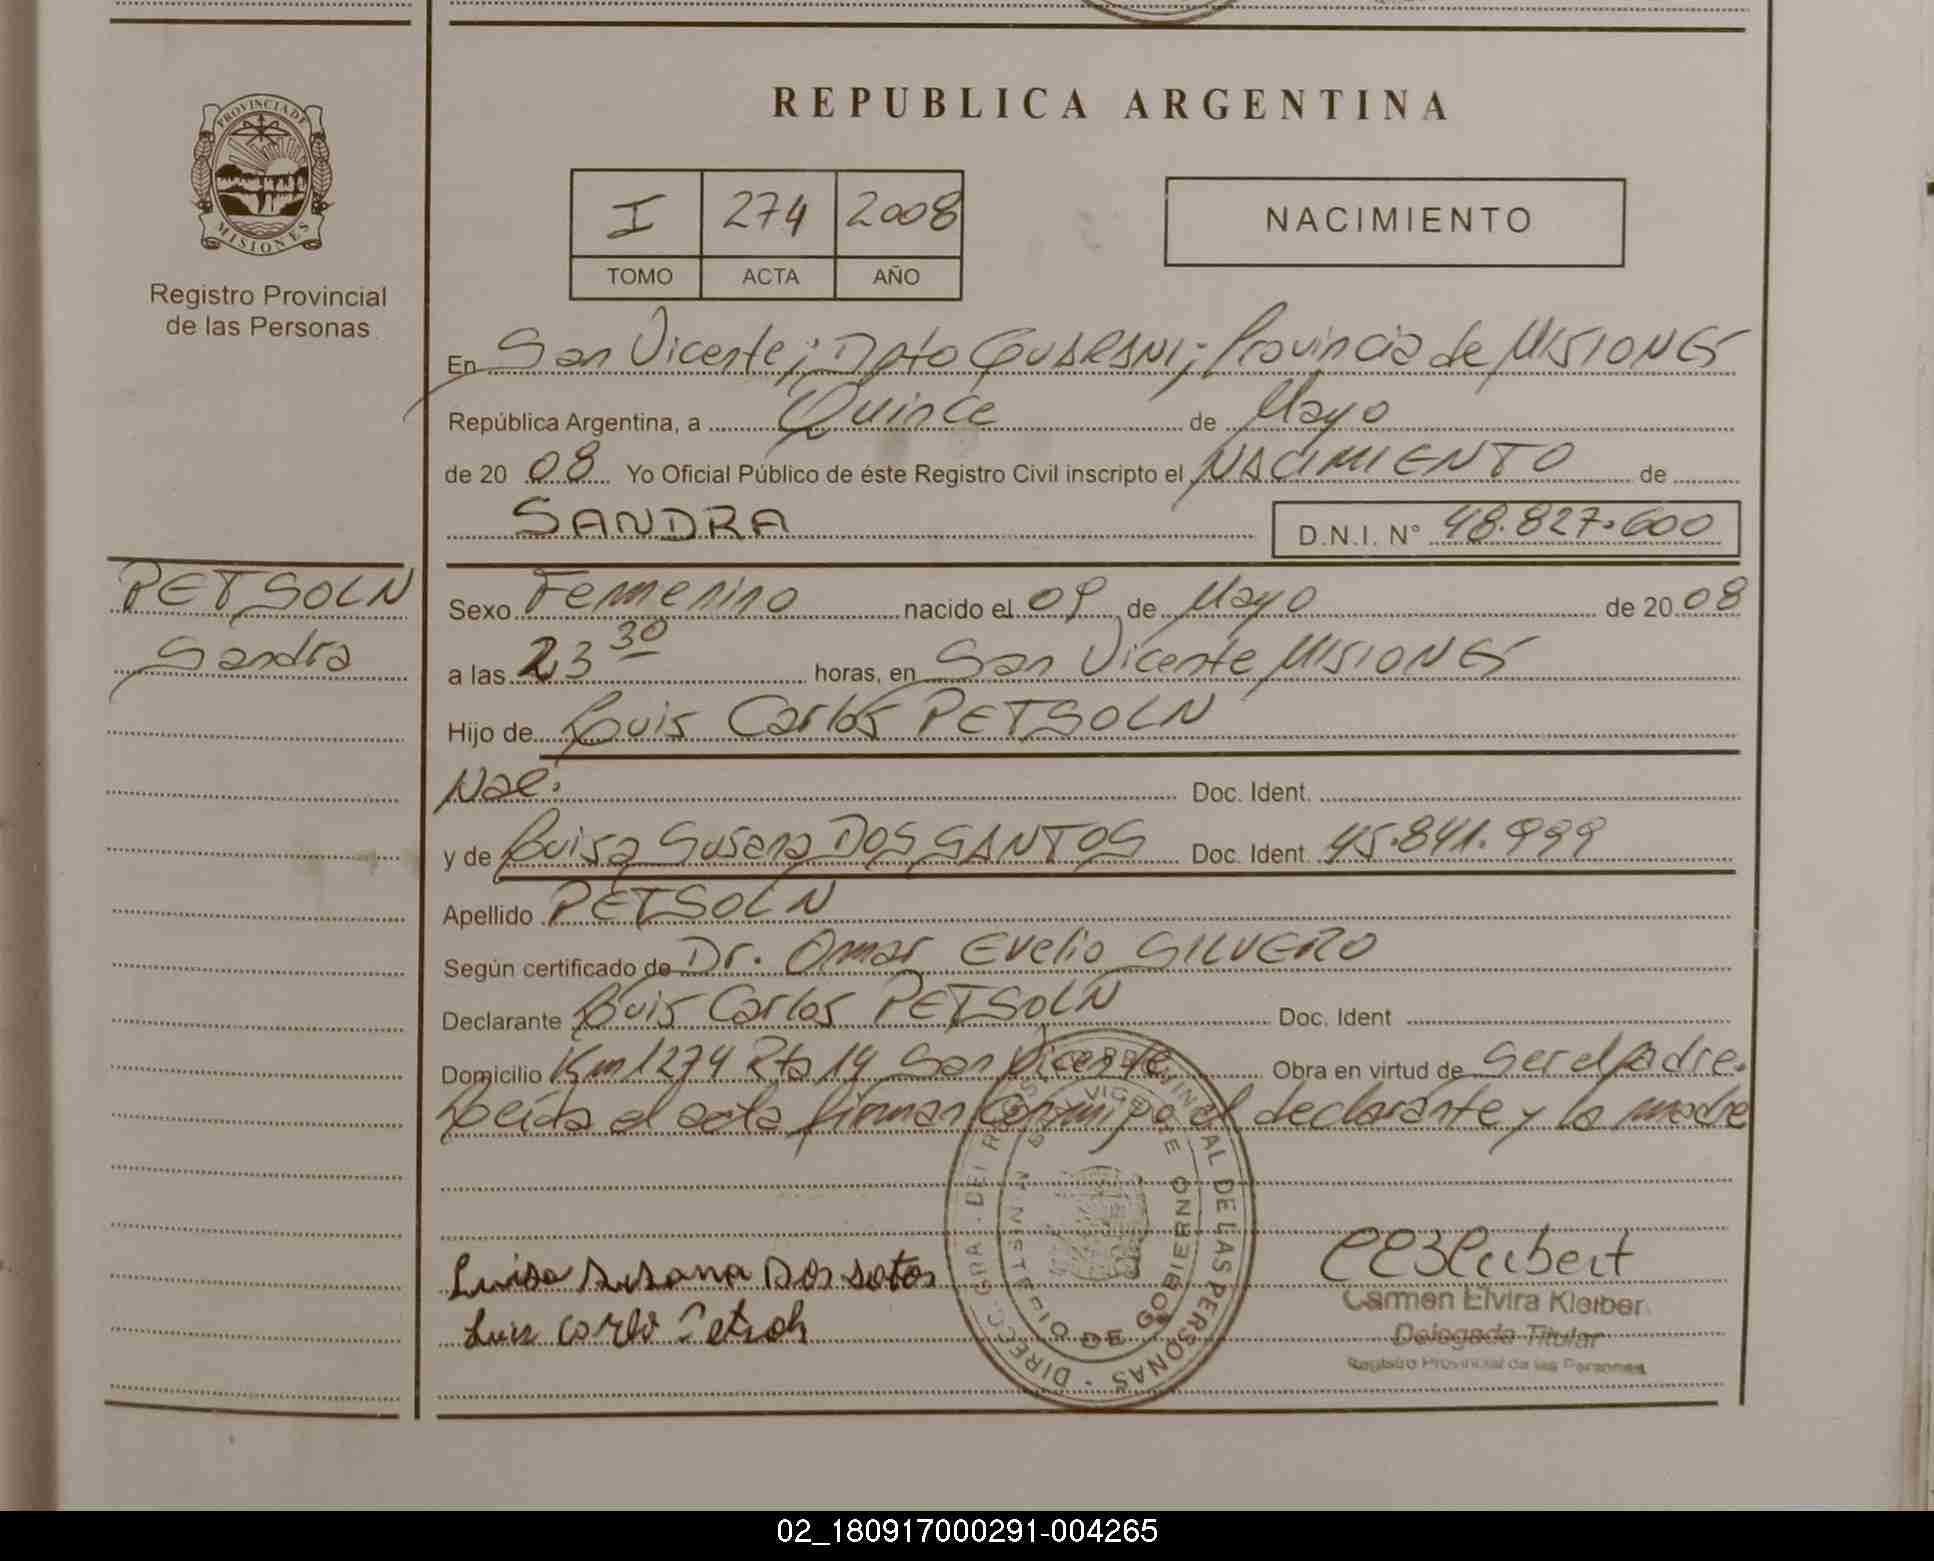 REPUBLICA ARGENTINA
PROVINCIA DE
MISIONES
Registro Provincial
de las Personas
I 274 2008
TOMO ACTA AÑO
NACIMIENTO
En San Vicente; Dpto GUARANI; Provincia de MISIONES
República Argentina, a Quince de Mayo
de 20 08 Yo Oficial Público de éste Registro Civil inscripto el NACIMIENTO de
SANDRA D.N.I. N° 48.827.600
PETSOLN
Sandra
Sexo Femenino nacido el 09 de Mayo de 20 08
a las 23 30 horas, en San Vicente MISIONES
Hijo de Luis Carlos PETSOLN
Nac. Doc. Ident.
y de Luisa Susana DOS SANTOS Doc. Ident. 45.841.999
Apellido PETSOLN
Según certificado de Dr. Omar Evelio SILVERO
Declarante Luis Carlos PETSOLN Doc. Ident
Domicilio Km 1274 Rta 14 San Vicente Obra en virtud de Ser el padre.
Leída el acta firman conmigo el declarante y la madre
DIRECC. GRAL. DEL REGISTRO PROVINCIAL DE LAS PERSONAS
MINISTERIO DE GOBIERNO
Luisa Susana Dos satos
Luis Carlo Petsoln
Carmen Elvira Kleiber
Delegada Titular
Registro Provincial de las Personas
02_180917000291-004265